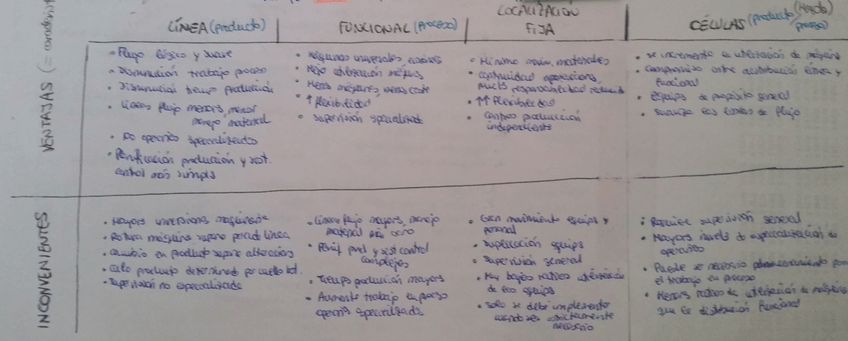 LÍNEA (producto)
FUNCIONAL (Proceso)
LOCALIZACIÓN
FIJA
CÉLULAS (producto) (Híbrido)
proceso)
VENTAJAS (=
• Flujo lógico y suave
• Disminución trabajo proceso
• Disminución tiempo producción
• Líneas flujo menores, menor
manejo material
• No operarios especializados
• Planificación producción y sist.
control más simples
• Máquinas universales,
• Mejor utilización máquinas
• Menos máquinas, menos coste
• ↑ Flexibilidad
• Supervisión especializada
• Mínimo movim. materiales
• Continuidad operaciones,
responsabilidad
• ↑↑ Flexibilidad
• Centros producción
independiente
• Se incrementa la utilización de máquina
• Compromiso entre distribución línea y
funcional
• Equipos de propósito general
• Suaviza las líneas de flujo
INCONVENIENTES
• Mayores inversiones maquinaria
• Rotura máquina supone parada línea
• Cambio en producto supone alteración
• Ciclo producto determinado por cuello bot.
• Supervisión no especializada
• Líneas flujo mayores, manejo
material más caro
• Planif. prod y sist control
complejos
• Tiempo producción mayores
• Aumento trabajo en proceso
operarios especializados
• Gran movimiento equipos y
personal
• Duplicación equipos
• Supervisión general
• Muy bajos ratios utilización
de los equipos
• Solo se debe implementar
cuando sea estrictamente
necesario
• Requiere supervisión general
• Mayores niveles de especialización de
operarios
• Puede ser necesario almacenamiento para
el trabajo en proceso
• Menores ratios de utilización de máquinas
que la distribución funcional